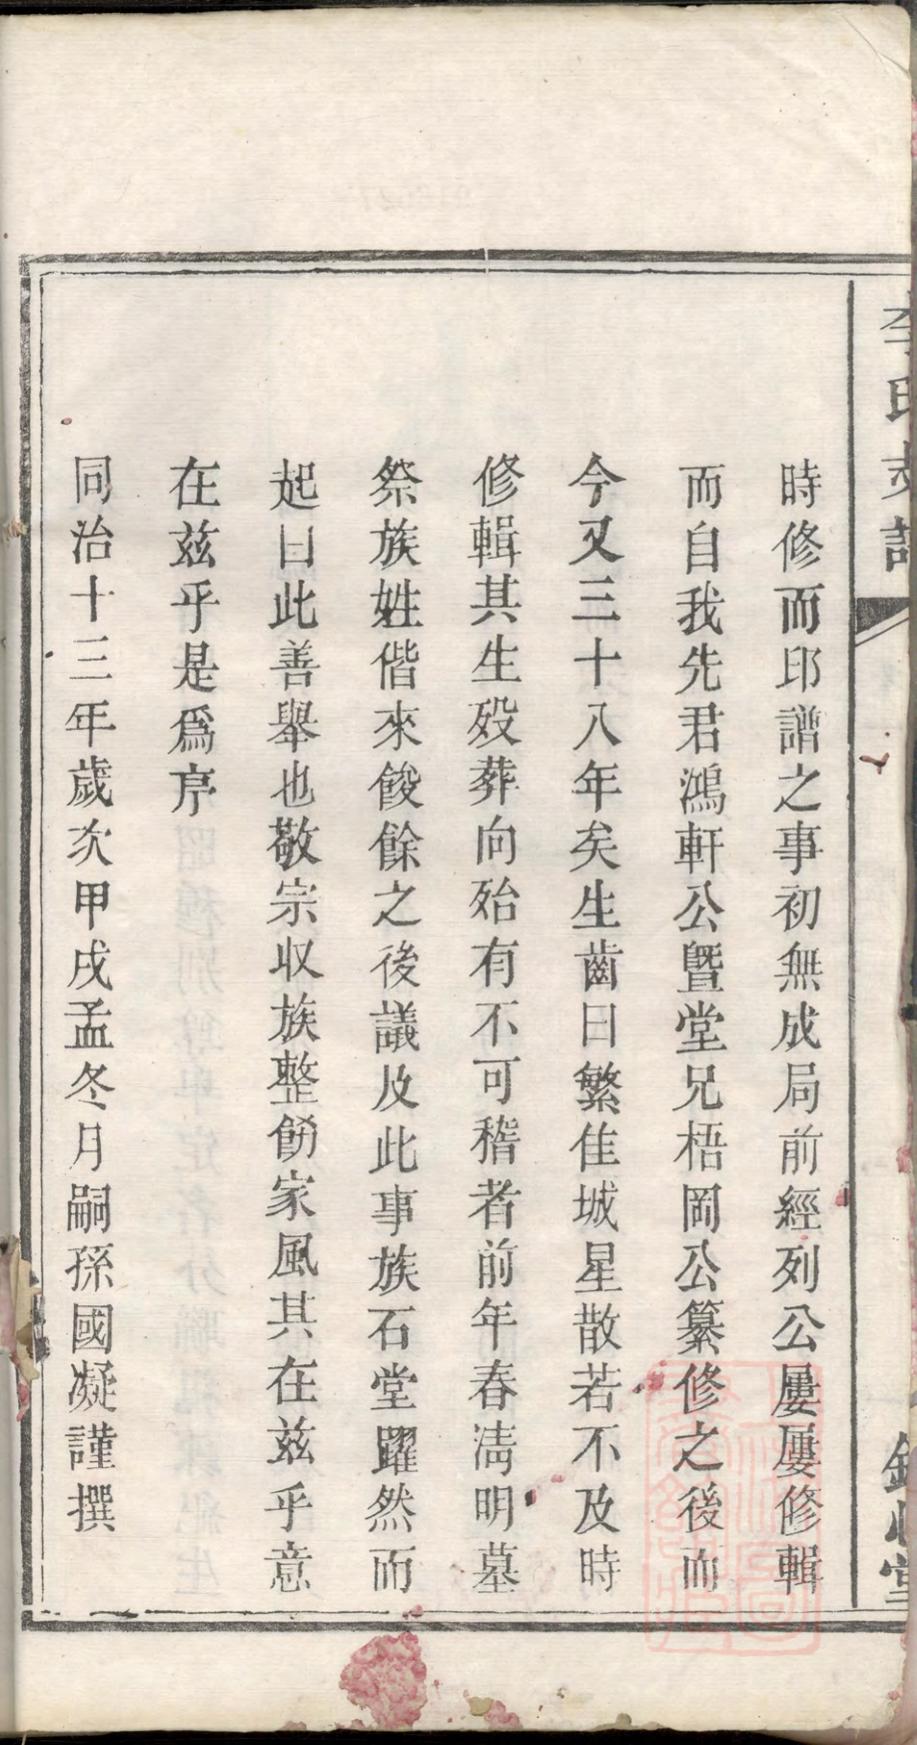 李氏支譜
時修而邱譜之事初無成局前經列公屢屢修輯
而自我先君鴻軒公暨堂兄梧岡公纂修之後而
今又三十八年矣生齒日繁佳城星散若不及時
修輯其生歿葬向殆有不可稽者前年春淸明墓
祭族姓偕來餕餘之後議及此事族石堂躍然而
起曰此善舉也敬宗收族整飭家風其在茲乎意
在茲乎是爲序
同治十三年歲次甲戌孟冬月嗣孫國凝謹撰